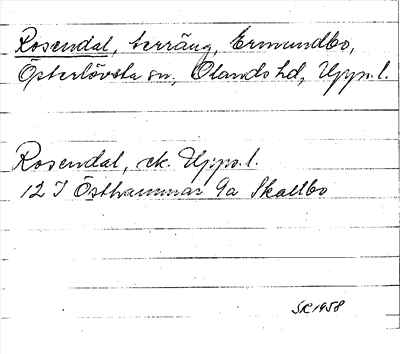 Rosendal, terräng, Ermundbo,
Österlövsta sn, Olands hd, Upps. l.
Rosendal, ek. Upps. l.
12 I Östhammar 9a Skallbo
SK 1958